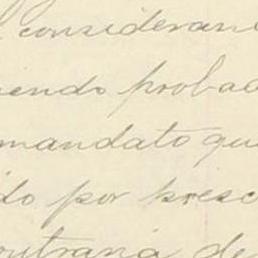 considerand
iendo probad
mandato qu
do por presc
contraria de